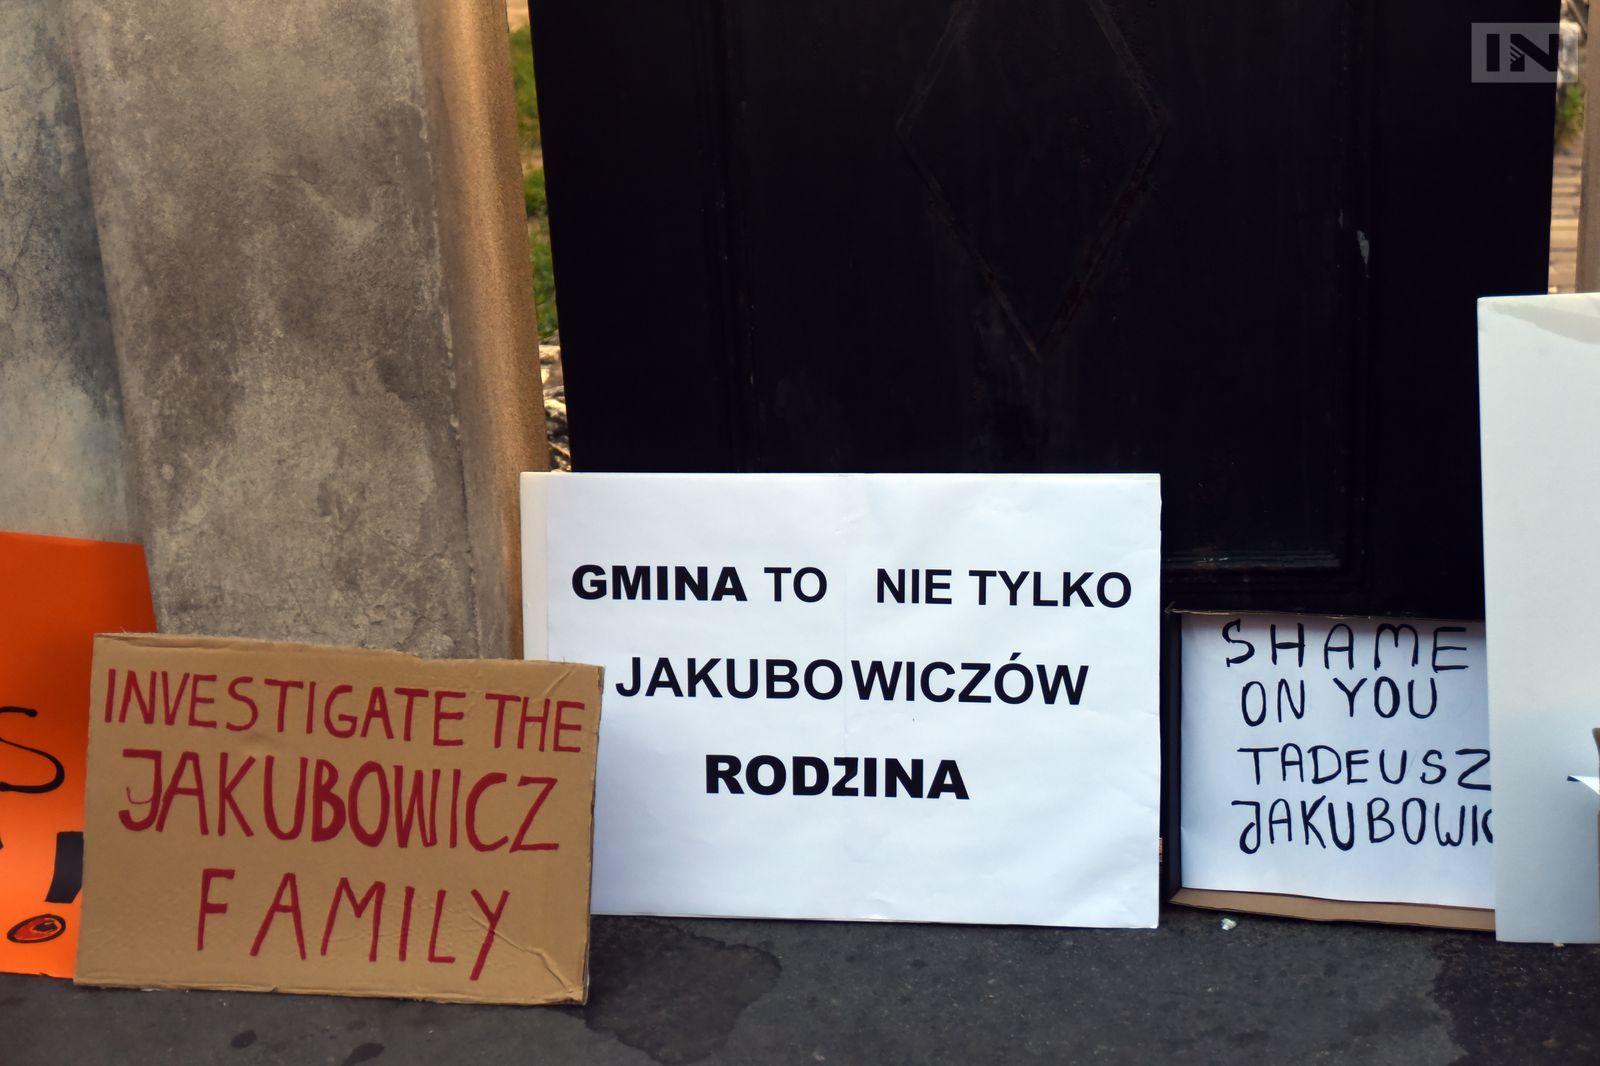 IN
INVESTIGATE THE
JAKUBOWICZ
FAMILY
GMINA TO NIE TYLKO
JAKUBOWICZÓW
RODZINA
SHAME
ON YOU
TADEUSZ